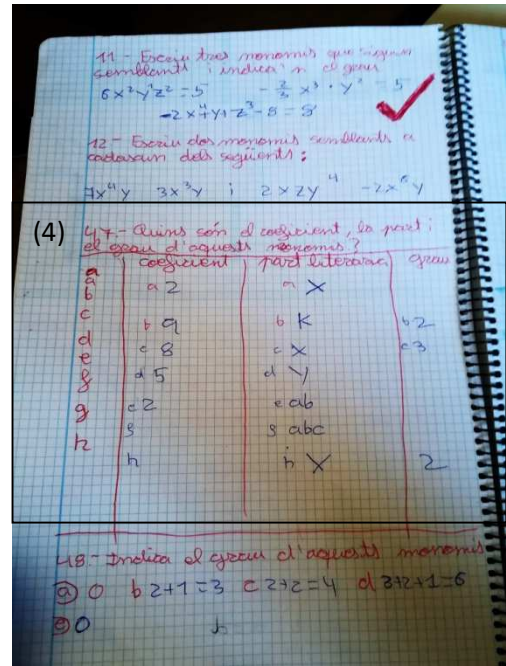 11 - Escriu tres monomis que siguin
semblants i indica'n el grau
6x²y¹z² = 5 - 2/3 x³ · y² = 5
-2x⁴y+z³-8 = 8
12 - Escriu dos monomis semblants a
cadascun dels següents:
7x⁴y 3x³y i 2xzy⁴ -2x⁶y
(4)
47.- Quins són el coeficient, la part i
el grau d'aquests monomis?
coeficient part literaria grau
a
a a 2 a X
b
c b 9 b K b 2
d c 8 c X c 3
e
f d 5 d Y
g e 2 e ab
h g g abc
h h X 2
48.- Indica el grau d'aquests monomis
a 0 b 2+1=3 c 2+2=4 d 3+2+1=6
e 0